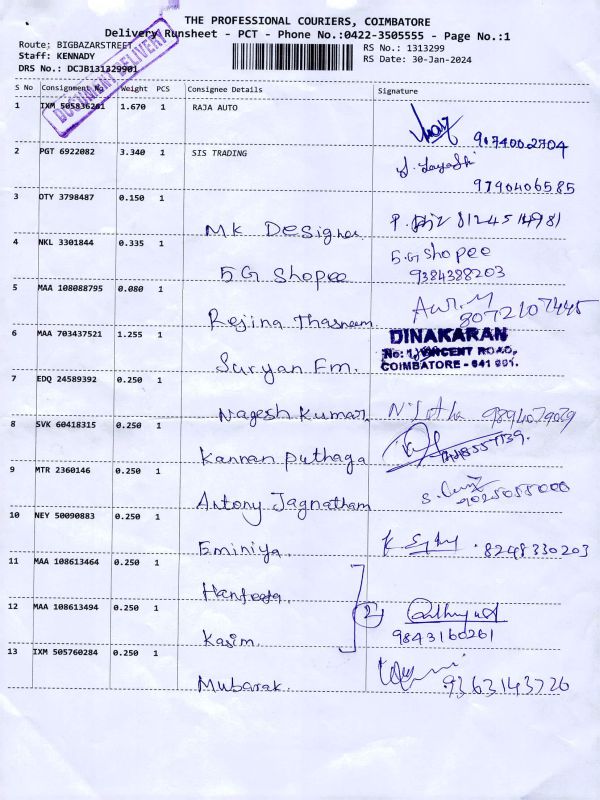 THE PROFESSIONAL COURIERS, COIMBATORE
Delivery Runsheet - PCT - Phone No.:0422-3505555 - Page No.:1
Route: BIGBAZARSTREET
RS No.: 1313299
Staff: KENNADY
RS Date: 30-Jan-2024
DRS No.: DCJB131329901
DOCUMENT DELIVERY
S No Consignment No Weight PCS Consignee Details Signature
1 IXM 505836261 1.670 1 RAJA AUTO
9074002704
2 PGT 6922082 3.340 1 SIS TRADING
9790406585
3 DTY 3798487 0.150 1
MK Designer P. 8124514981
4 NKL 3301844 0.335 1
5G Shopee 5.G Shopee
9384388203
5 MAA 108088795 0.080 1
Rejina Thasneem
6 MAA 703437521 1.255 1
Suryan Fm.
DINAKARAN
COIMBATORE - 641 001.
7 EDQ 24589392 0.250 1
Nagesh Kumar
8 SVK 60418315 0.250 1
Kannan Puthaga
9 MTR 2360146 0.250 1
Antony Jagnatham S.
10 NEY 50090883 0.250 1
Eminiya. 8248330203
11 MAA 108613464 0.250 1
12 MAA 108613494 0.250 1
2
Kasim. 9843160261
13 IXM 505760284 0.250 1
Mubarak. 9363143726